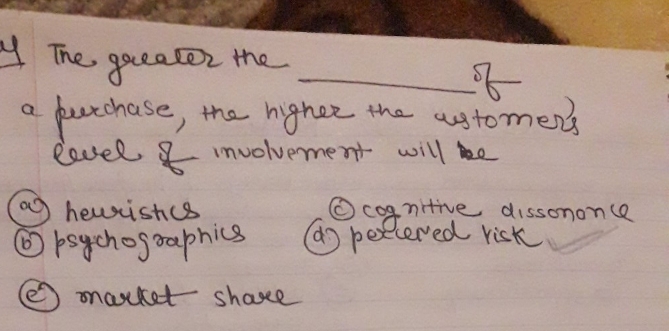 The greater the ________ of
a purchase, the higher the customer's
level of involvement will be
(a) heuristics (c) cognitive dissonance
(b) psychographics (d) percieved risk
(e) market share